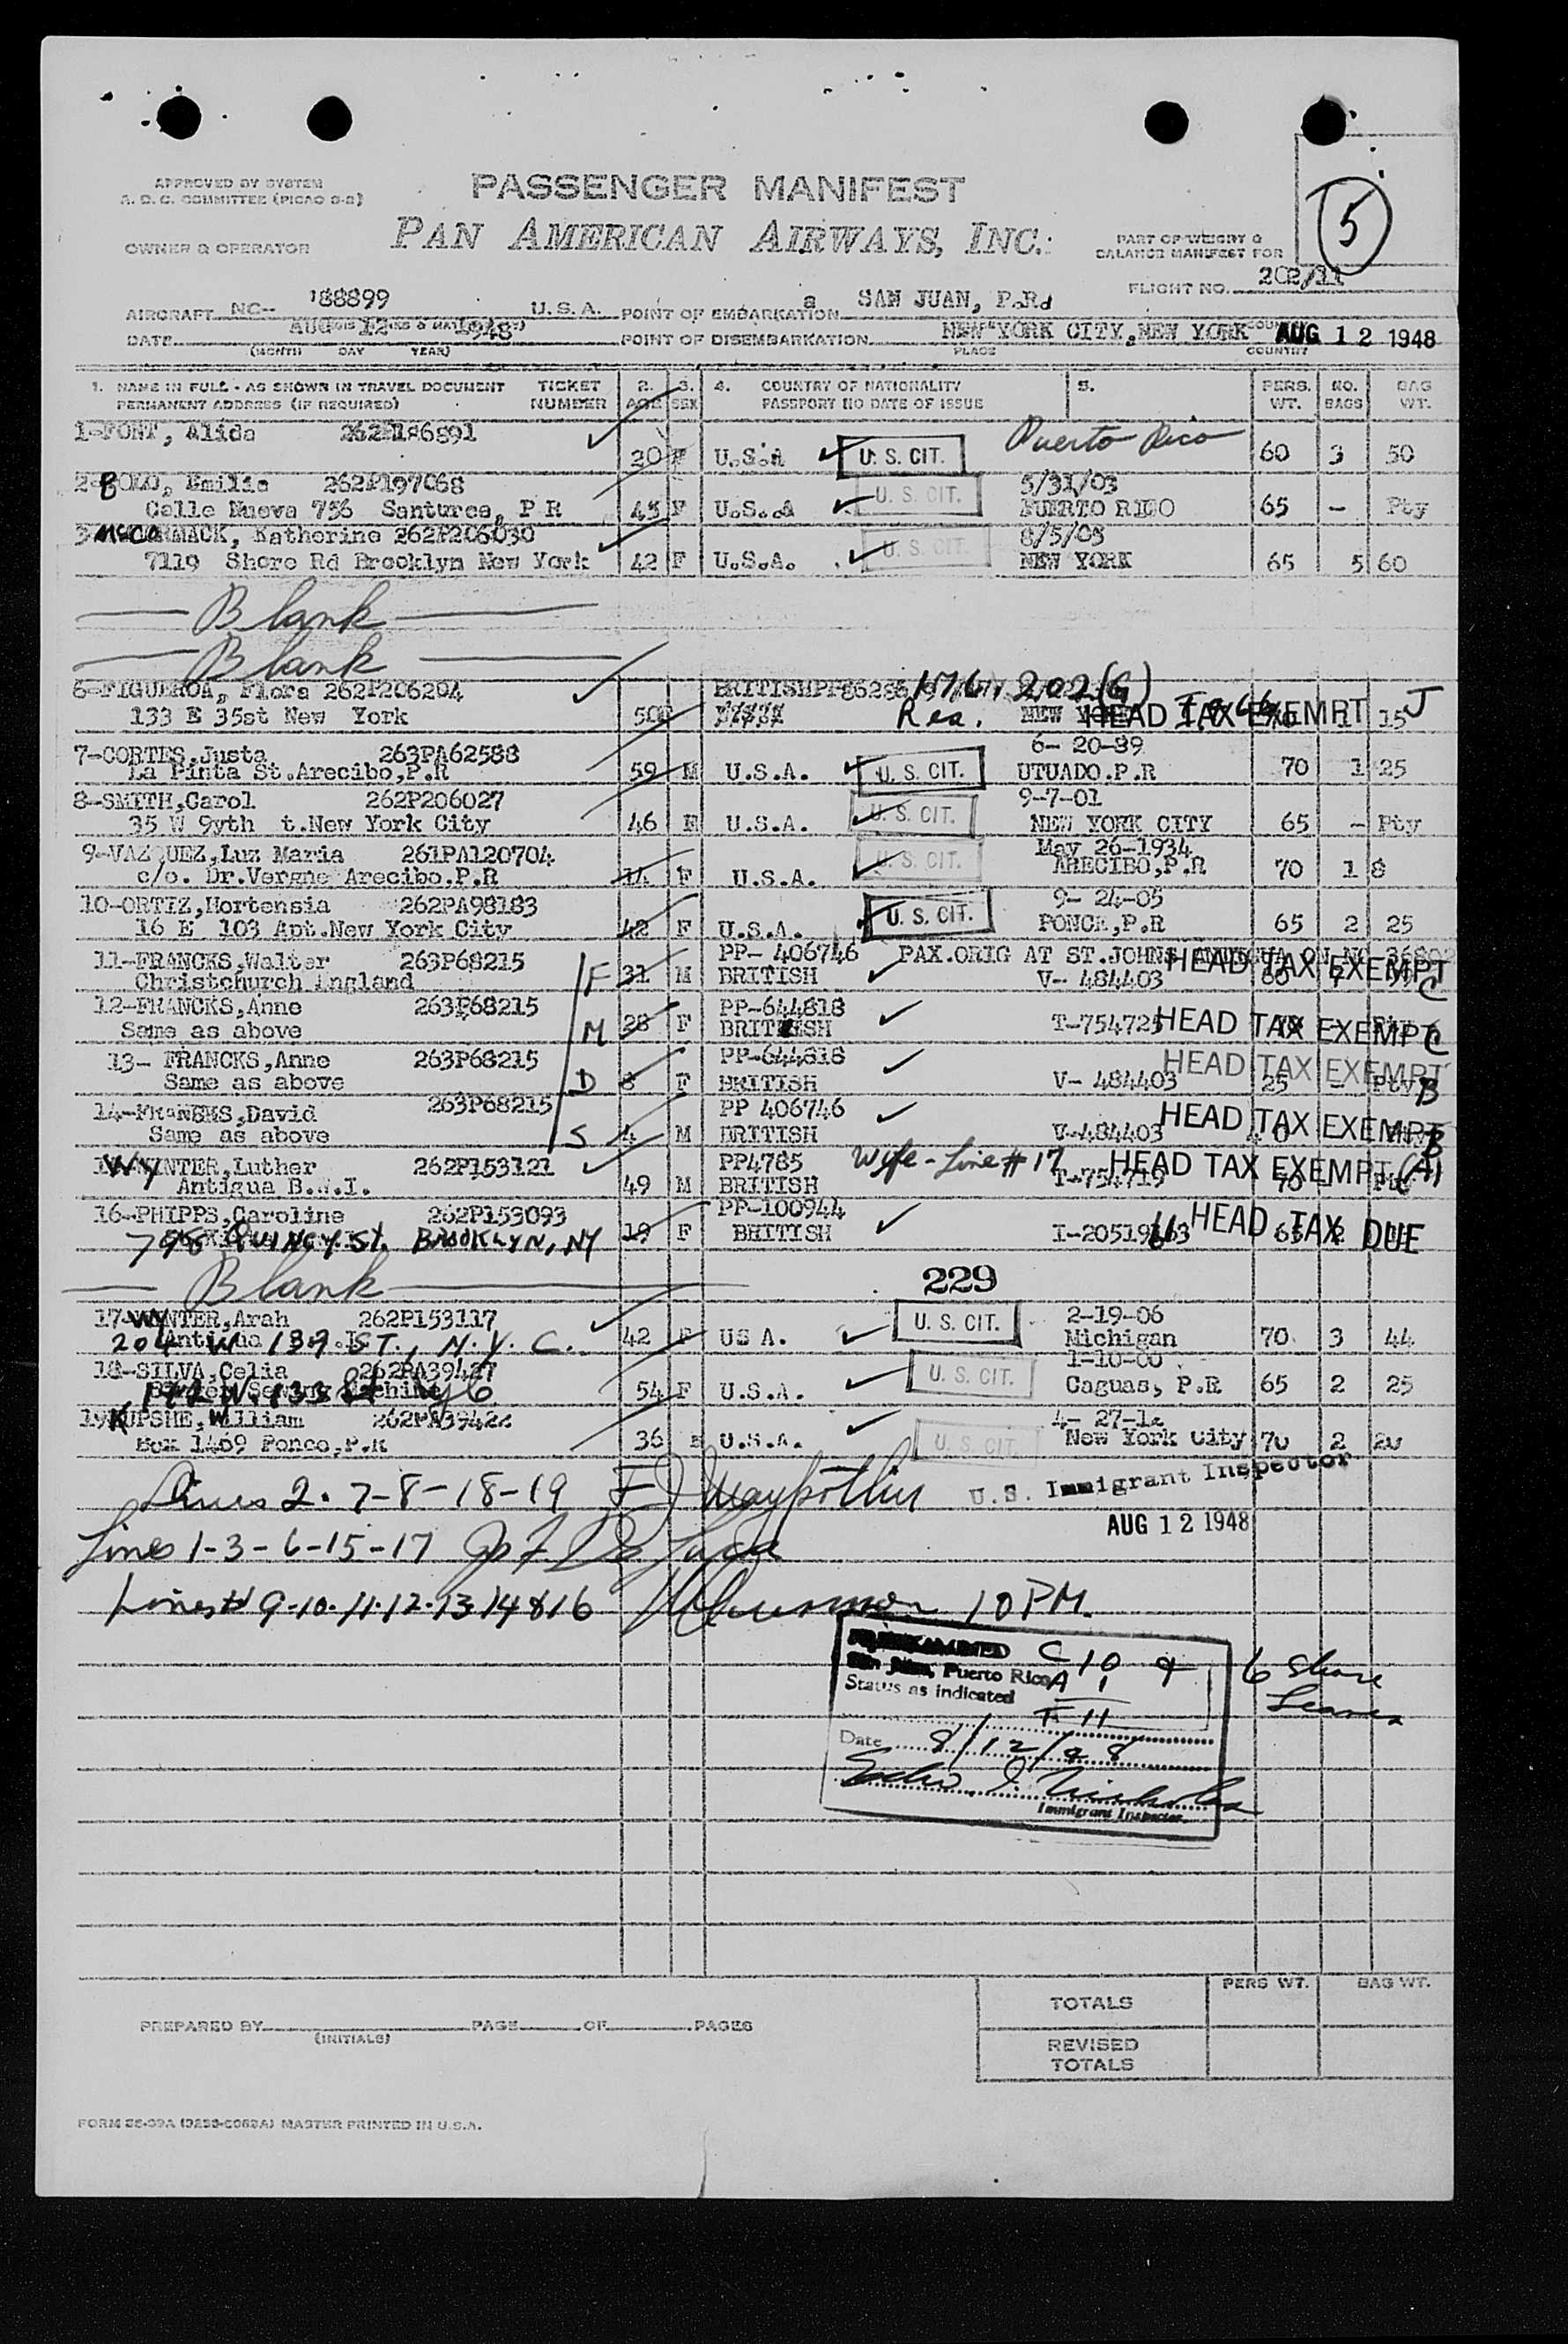 APPROVED BY SYSTEM
A. D. C. COMMITTEE (PICAO 9-8)
PASSENGER MANIFEST
PAN AMERICAN AIRWAYS, INC.
OWNER & OPERATOR
PART OF WEIGHT &
BALANCE MANIFEST FOR
5
FLIGHT NO. 202/11
AIRCRAFT NC-- 188899 U.S.A. POINT OF EMBARKATION SAN JUAN, P.R.
DATE AUG 12 1948 POINT OF DISEMBARKATION NEW YORK CITY, NEW YORK AUG 12 1948
(MONTH DAY YEAR) PLACE COUNTRY
1. NAME IN FULL - AS SHOWN IN TRAVEL DOCUMENT TICKET 2. 3. 4. COUNTRY OF NATIONALITY 5. PERS. NO. BAG
PERMANENT ADDRESS (IF REQUIRED) NUMBER AGE SEX PASSPORT NO DATE OF ISSUE WT. BAGS WT.
1-FONT, Alida
20 F U.S.A U. S. CIT. Puerto Rico 60 3 50
2-BOLO, Emilia 262P197068 5/31/03
Calle Nueva 756 Santurce, P R 45 F U.S.A U. S. CIT. PUERTO RICO 65 - Pty
3 McCORMACK, Katherine 262P206030
7119 Shore Rd Brooklyn New York 42 F U.S.A. U. S. CIT. NEW YORK 65 5 60
Blank
Blank
6-FIGUEROA, Flora 262P206204 BRITISH 176. 202(G)
133 E 35st New York 50 Rea. NEW YORK HEAD TAX EXEMPT 1 15 J
7-CORTES, Justa 263PA62588 6- 20-89
La Pinta St. Arecibo, P.R 59 M U.S.A. U. S. CIT. UTUADO. P.R 70 1 25
8-SMITH, Carol 262P206027 9-7-01
35 W 9yth t. New York City 46 F U.S.A. U. S. CIT. NEW YORK CITY 65 - Pty
9-VAZQUEZ, Luz Maria 261PA120704 May 26-1934
c/o. Dr. Vergne Arecibo. P.R 14 F U.S.A. U. S. CIT. ARECIBO, P.R 70 1 8
10-ORTIZ, Hortensia 262PA98183 9- 24-05
16 E 103 Apt. New York City 42 F U.S.A. U. S. CIT. PONCE, P.R 65 2 25
11-FRANCKS, Walter 263P68215 PP- 406746 PAX. ORIG AT ST. JOHNS
Christchurch England F 31 M BRITISH V- 484403 HEAD TAX EXEMPT C
12-FRANCKS, Anne 263P68215 PP-644818
Same as above M 28 F BRITISH T-754725 HEAD TAX EXEMPT C
13- FRANCKS, Anne 263P68215 PP-644818 HEAD TAX EXEMPT
Same as above D 8 F BRITISH V- 484403 25 - Pty B
14-FRANCKS, David 263P68215 PP 406746
Same as above S 4 M BRITISH V-484403 HEAD TAX EXEMPT B
WYNTER, Luther 262P153121 PP4785 Wife - Line # 17 HEAD TAX EXEMPT (A)
Antigua B.W.I. 49 M BRITISH T-754719 70
16-PHIPPS, Caroline 262P153093 PP-100944
798 QUINCY ST. BROOKLYN, NY 19 F BRITISH HEAD TAX DUE
Blank 229
17-WYNTER, Arah 262P153117 2-19-06
204 W 139 ST., N.Y.C. 42 F US A. U. S. CIT. Michigan 70 3 44
18-SILVA, Celia 262PA39427 1-10-00
54 F U.S.A. U. S. CIT. Caguas, P.R 65 2 25
19 KUPSHE, William 4- 27-12
Box 1469 Ponce, P.R 36 U.S.A. U. S. CIT. New York City 70 2 20
Lines 2. 7-8-18-19 U.S. Immigrant Inspector
AUG 12 1948
Lines 1-3-6-15-17
Lines 9-10-11-12-13-14 & 16 10 PM.
San Juan, Puerto Rico C 10
Status as indicated A 1
Date 8/12/48
Immigrant Inspector
TOTALS PERS WT. BAG WT.
PREPARED BY PAGE OF PAGES
(INITIALS)
REVISED
TOTALS
MASTER PRINTED IN U.S.A.